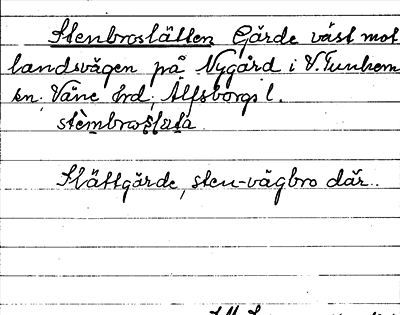 Stenbroslätten Gärde väst mot
landsvägen på Nygård i V. Tunhem
sn, Väne hrd, Älfsborgs l.
Slättgärde, sten-vägbro där.